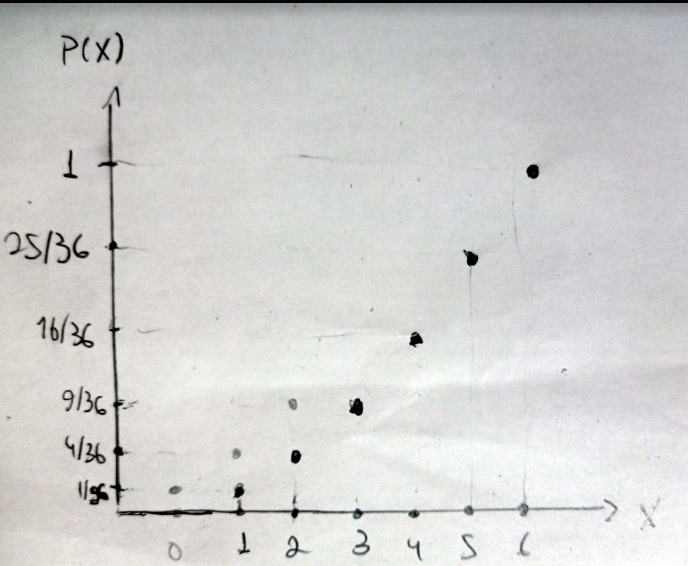 P(X)
1
25/36
16/36
9/36
4/36
1/36
X
0 1 2 3 4 5 6